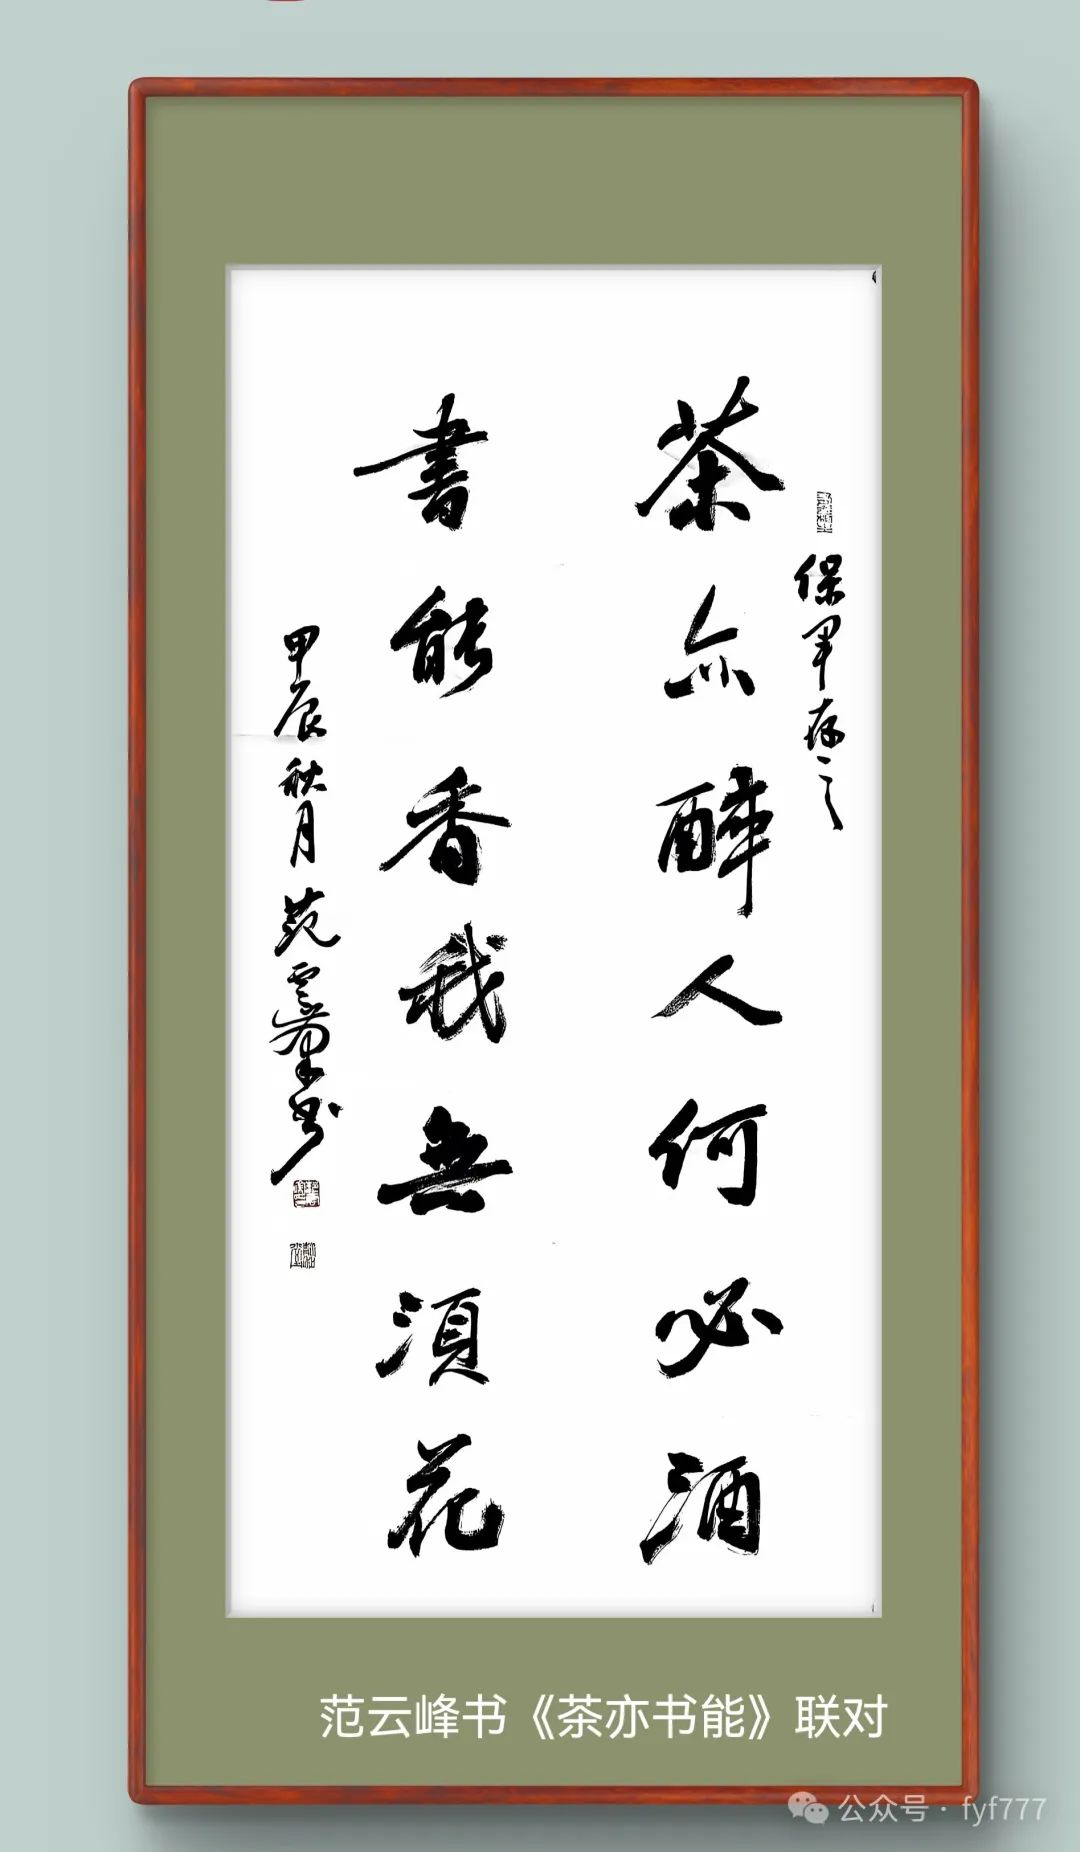 保军存之
茶亦醉人何必酒
書能香我無須花
甲辰秋月范云峰书
范云峰书《茶亦书能》联对
公众号·fyf777